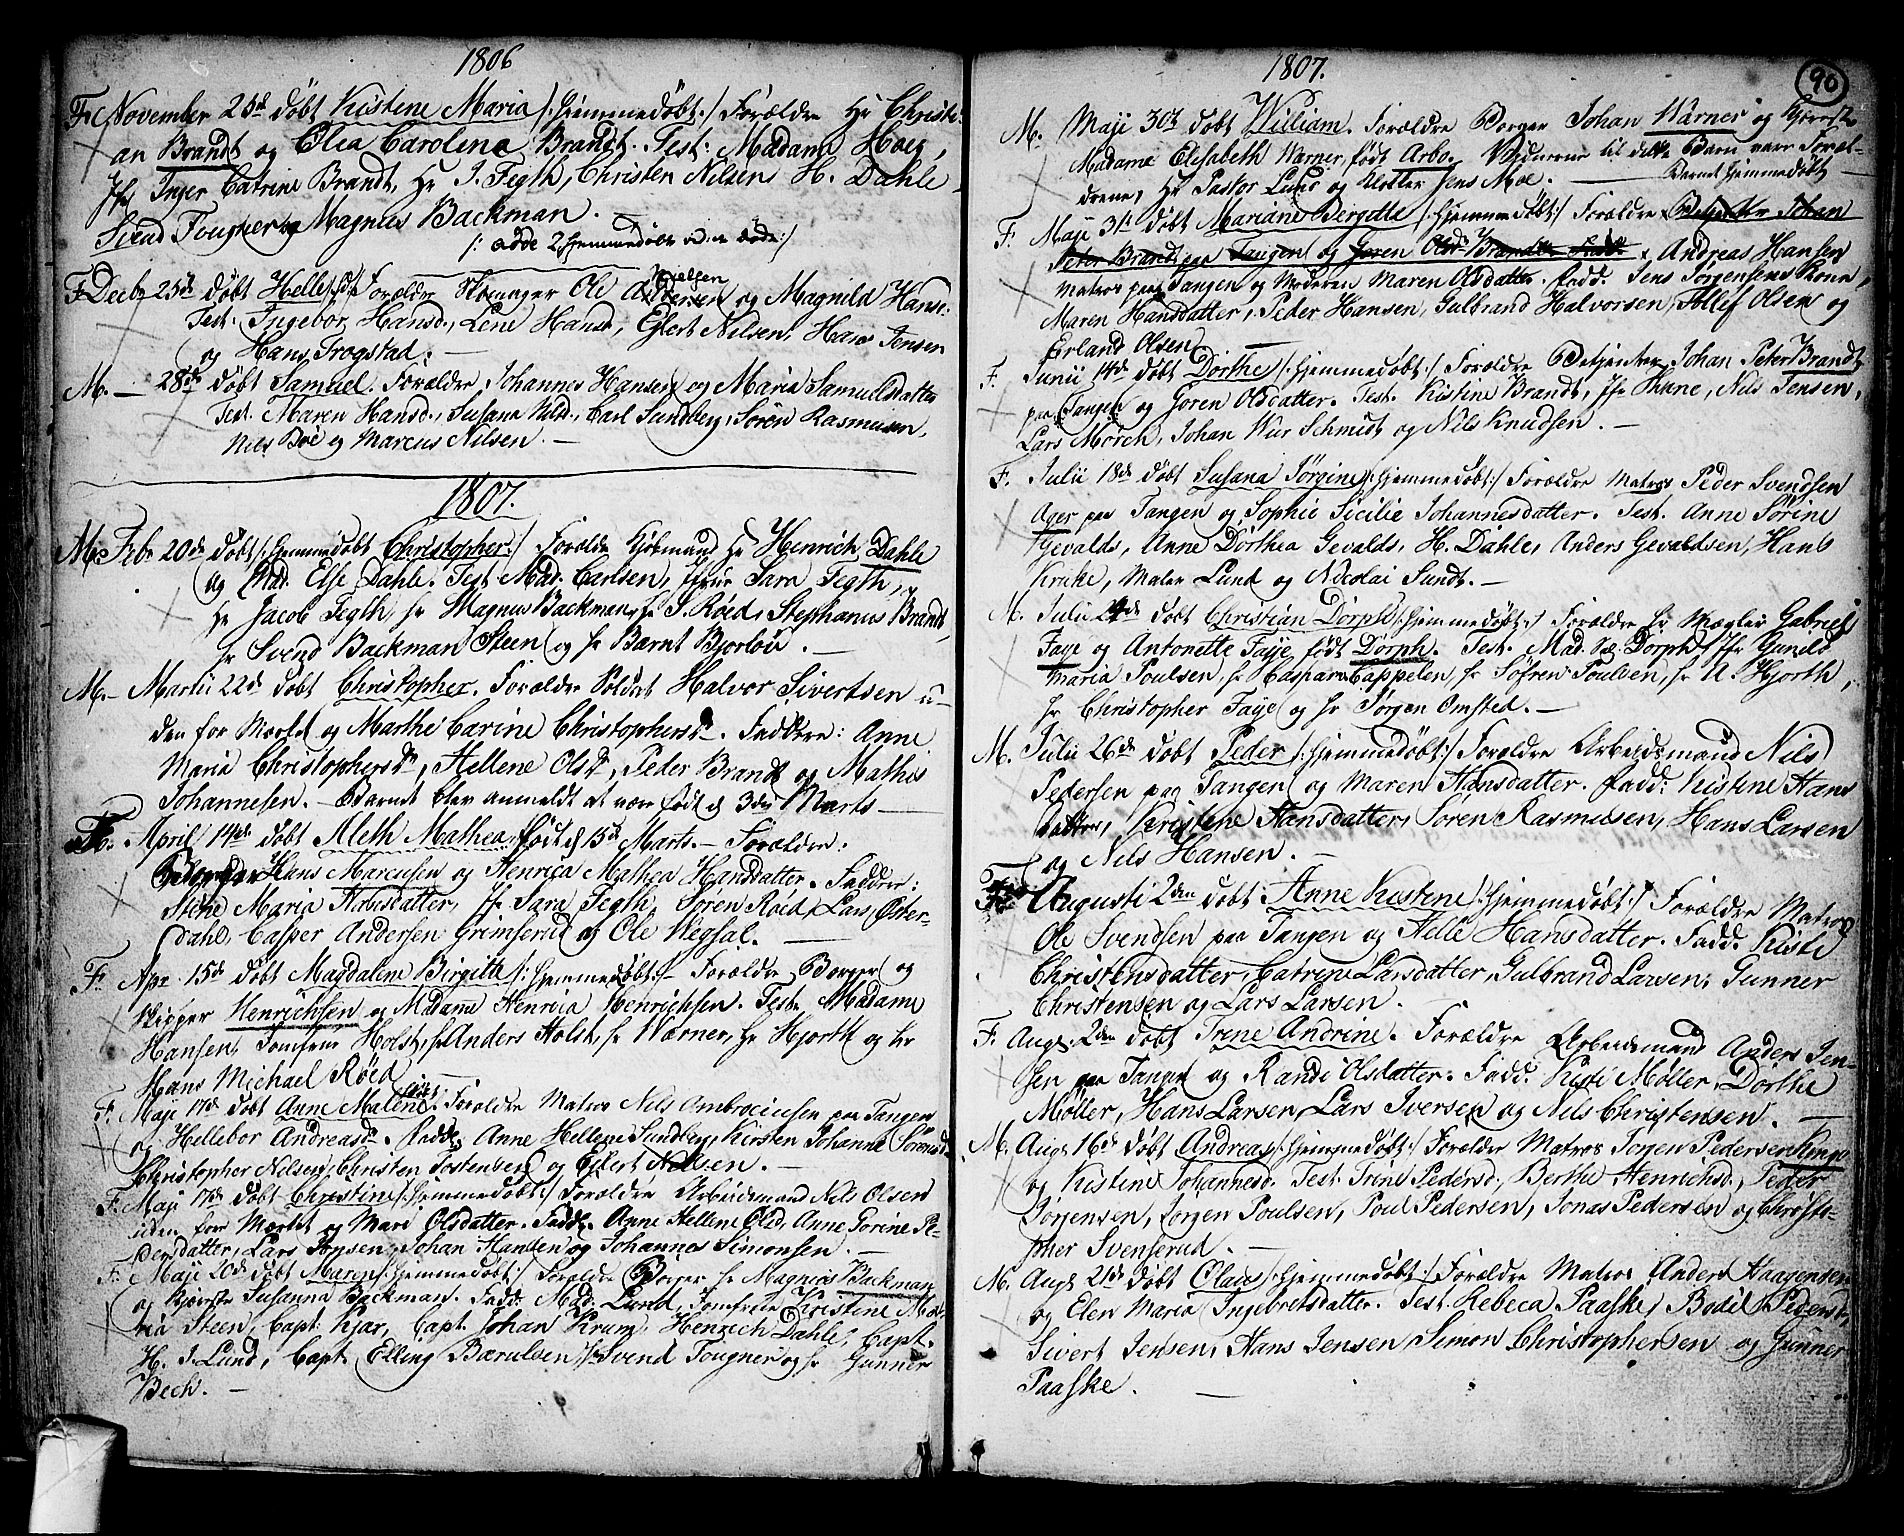 1806
F. November 25de døbt Kistene Maria /: hjemmedøbt :/ Forældre Hr Christi-
an Brandt og Olea Carolina Brandt. Test: Madame Hoeg,
Jfr Inger Catrine Brandt, Hr J. Tegth, Christen Nilsen, H. Dahle
Svend Fougner og Magnus Backman.
F. Decbr 25de døbt Helle Forældre Ole Nielsen og Magnild Hansd:
Test: Ingebor Hansd., Lene Hansd, Eilert Nilsen, Hans Jensen
og Hans Trogstad. —
M. — 28de døbt Samuel. Forældre Johannes Hansen og Maria Samuelsdatter
Test. Maren Hansd., Susana Nilsd., Carl Sundberg, Søren Rasmusen,
Nils Boe og Marcus Nilsen. —
1807.
M. Febr 20de døbt /: hjemmedøbt Christopher :/ Forældre Kjøbmand Hr Henrich Dahle
og Mad. Else Dahle. Test Mad. Carlsen, Jfr Sara Tegth,
Hr Jacob Tegth, hr Magnus Backman, hr S. Røed, Stephanus Brandt,
hr Svend Backman Steen og hr Barnt Bjorløv. —
M. — Martii 22de døbt Christopher. Forældre Soldat Halvor Sivertsen u-
den for Mærket og Marthe Carine Christophersd. Faddere: Anne
Maria Christophersd, Hellene Olsd, Peder Brandt og Mathis
Johannesen. — Barnet blev anmeldt at være født d 3die Marts —
F. April 14de døbt Aleth Mathea, født d 15de Marts. — Forældre:
Hans Marcusen og Henrica Mathea Hansdatter. Faddere:
Stene Maria Hansdatter, Jfr Sara Tegth, Søren Røed, Lars Øster-
dahl, Casper Andersen Grimserud og Ole Wegsal. —
F. Apr 15de døbt Magdalene Birgitte /: hjemmedøbt :/ Forældre Borger og
Skipper Henrichsen og Madame Henrica Henrichsen. Test. Madame
Hansen, Jomfrue Holst, hr Anders Holst, hr Warner, Hr Hjorth og hr
Hans Michael Røed —
F. Maji 17de døbt Anne Malene. Forældre Matros Nils Ambrociusen paa Tangen
og Hellebor Andreasd. Fadd. Anne Hellene Sundberg, Kirsten Johanne Sørensd.
Christopher Nilsen, Christen Tostensen og Eilert Nilsen. —
F. Maji 17de døbt Christine /: hjemmedøbt :/ Forældre Arbeidsmand Nils Olsen
uden for Mærket og Mari Olsdatter. Fadd. Anne Hellene Olsd, Anne Torine Pe-
dersdatter, Lars Jensen, Johan Hansen og Johannes Simonsen. —
F. Maji 20de døbt Maren /: hjemmedøbt :/ Forældre Borger hr Magnus Backman
og Kjæreste Susanna Backman. Fadd. Mad. Lund, Jomfrue Kristine Ma-
ria Steen, Capt. Kjær, Capt. Johan Krum, Henrich Dahle, Capt.
H. J. Lund, Capt. Elling Bærulsen, hr Svend Fougner og hr Gunner
Bech. —
1807.
90
M. Maji 30te døbt William. Forældre Borger Johan Warner og Kjæreste
Madame Elisabeth Warner, født Arbo. Vidnerne til dette Barn vare Foræl-
drene, Hr Pastor Lund og Klokker Jens Moe. — Barnet hjemmedøbt
F. Maji 31te døbt Mariane Bergitte /: hjemmedøbt :/ Forældre Betjenter Johan
Peter Brandt paa Tangen og Goren Olsd Andreas Hansen
Matros paa Tangen og Moderen Maren Olsdatter. Fadd. Jens Jørgensens Kone,
Maren Hansdatter, Peder Hansen, Gulbrand Halvorsen, Tollef Olsen og
Erland Olsen —
F. Junii 14de døbt Dorthe /: hjemmedøbt :/ Forældre Betjenter Johan Peter Brandt
paa Tangen og Goren Olsdatter. Test. Kistine Brandt, Jfr Thune, Nils Jensen,
Lars Mørch, Johan Wur Schmidt og Nils Knudsen. —
F. Julii 18de døbt Susana Jørgine /: hjemmedøbt :/ Forældre Matros Peder Svendsen
Ager paa Tangen og Sophie Sicilie Johannesdatter. Test. Anne Sørine
Gevalds, Anne Dorthea Gevalds, H. Dahle, Anders Gevaldsen, Hans
Kruke, Maler Lund og Nicolai Sundt. —
M. Julii døbt Christian Dorph /: hjemmedøbt :/ Forældre hr Mægler Gabriel
Faye og Antonette Faye, født Dorph. Test. Mad. Dorph, Jfr Gunild
Maria Poulsen, hr Haspara Cappelen, hr Søfren Poulsen, hr A. Hjorth,
hr Christopher Faye og hr Jørgen Omsted. —
M. Julii 26de døbt Peder /: hjemmedøbt :/ Forældre Arbeidsmand Nils
Pedersen paa Tangen og Maren Hansdatter. Fadd: Kistine Hans
datter, Kerstene Hansdatter, Søren Rasmussen, Hans Larsen
og Nils Hansen. —
F. Augusti 2den døbt Anne Kistene /: hjemmedøbt :/ Forældre Matros
Ole Svendsen paa Tangen og Helle Hansdatter. Fadd. Kisti
Christensdatter, Catrine Larsdatter, Gulbrand Larsen, Gunner
Christensen og Lars Larsen.
F. Augs. 2den døbt Trene Andrine. Forældre Arbeidsmand Anders Jen-
sen paa Tangen og Randi Olsdatter. Fadd. Kisti Møller, Dorthe
Møller, Hans Larsen, Lars Iversen og Nils Christensen. —
M. Augs 16de døbt Andreas /: hjemmedøbt :/ Forældre Matros Jørgen Pedersen Kinge
og Kistine Johannesd. Test. Trine Pedersd., Berthe Henrichsd., Peder
Jørgensen, Jørgen Poulsen, Poul Pedersen, Jonas Pedersen og Christo-
pher Svenserud. —
M. Augs 21de døbt Claus /: hjemmedøbt :/ Forældre Matros Anders Haagensen
og Elen Maria Ingebretsdatter. Test. Rebeca Paaske, Bodil Pedersd.,
Sivert Jensen, Hans Jensen, Simon Christophersen og Gunner
Paaske. —